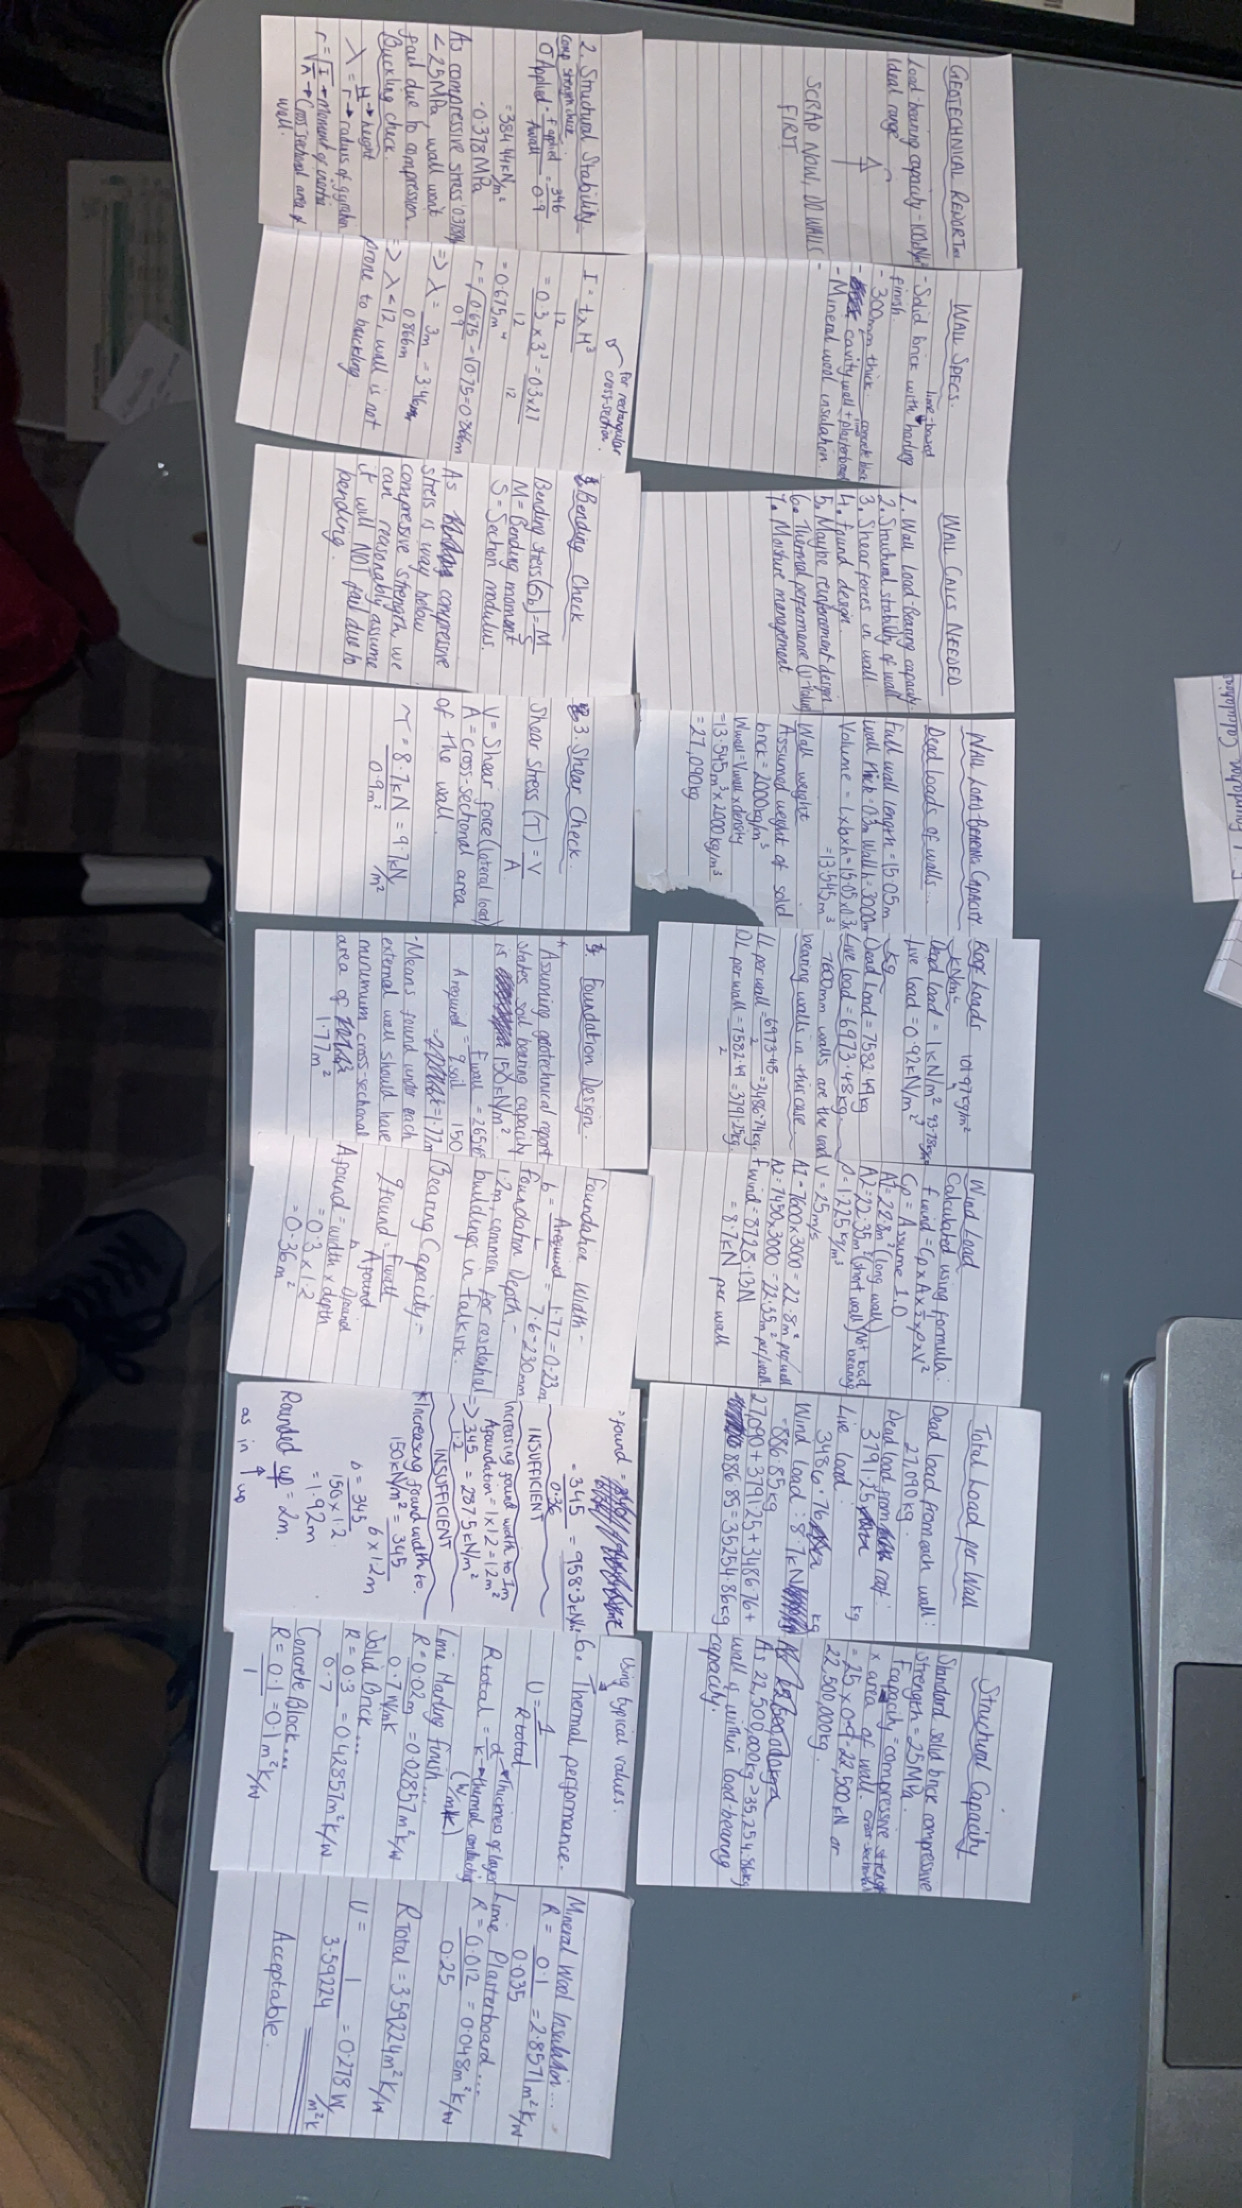 GEOTECHNICAL REPORT
Load bearing capacity - 100kN/m²
Ideal range
SCRAP NOW, DO WALLS
FIRST
WALL SPECS.
lime-based
- Solid brick with harling
finish.
- 300mm thick.
concrete block
- cavity wall + plasterboard
- Mineral wool insulation
WALL CALCS NEEDED
1. Wall Load-Bearing capacity
2. Structural stability of wall
3. Shear forces in wall
4. Found design.
5. Maybe reinforcement design
6. Thermal performance (U-Value)
7. Moisture management
WALL LOAD-BEARING CAPACITY
Dead loads of walls...
Full wall length = 15.05m
wall thick = 0.3m Wall h = 3000m
Volume = L x b x h = 15.05 x 0.3 x
= 13.545m³
Wall weight
Assumed weight of solid
brick = 2000kg/m³
Wwall = Vwall x density
= 13.545m³ x 2000kg/m³
= 27,090kg
Roof Loads
kN/m²
101.97kg/m²
Dead load = 1kN/m² 93.78kg/m²
Live load = 0.92kN/m²
kg
Dead Load = 7582.49kg
Live load = 6973.48kg
7600mm walls are the load
bearing walls in this case
LL per wall = 6973.48 = 3486.74kg
2
DL per wall = 7582.49 = 3791.25kg
2
Wind Load
Calculated using formula:
Fwind = Cp x A x ½ x ρ x V²
Cp = Assume 1.0
A1 = 22.8m² (long wall)
A2 = 22.35m² (short wall) Not load bearing
ρ = 1.225kg/m³
V = 25m/s
A1 = 7600 x 3000 = 22.8m² per/wall
A2 = 7450 x 3000 = 22.35m² per/wall
Fwind = 8728.13N
= 8.7kN per wall
Total Load per Wall
Dead load from each wall:
27,090kg.
Dead load from roof:
3791.25
Live load:
3486.76
kg
Wind load: 8.7kN
= 886.85kg
27,090 + 3791.25 + 3486.76 +
886.85 = 35254.86kg
Structural Capacity
Standard solid brick compressive
strength = 25MPa.
Fcapacity = compressive strength
x area of wall. cross-sectional
= 25 x 0.9 = 22,500kN or
22,500,000kg.
As 22,500,000kg > 35,254.86kg
wall is within load-bearing
capacity.
2. Structural Stability
Comp strength check
σ Applied = Fapplied = 346
Awall 0.9
= 384.44kN/m²
= 0.378MPa
As compressive stress 0.378MPa
< 25MPa, wall won't
fail due to compression
Buckling check.
λ = H → height
r → radius of gyration
r = √I → Moment of inertia
A → Cross sectional area of
wall.
for rectangular
cross-section.
I = t x H³
12
= 0.3 x 3³ = 0.3 x 27
12 12
= 0.675m⁴
r = √0.675 = √0.75 = 0.866m
0.9
=> λ = 3m = 3.46m
0.866m
=> λ < 12, wall is not
prone to buckling.
Bending Check
Bending stress (σb) = M
S
M = Bending moment
S = Section modulus.
As compressive
stress is way below
compressive strength, we
can reasonably assume
it will NOT fail due to
bending.
3. Shear Check.
Shear Stress (τ) = V
A
V = Shear force (lateral load)
A = cross-sectional area
of the wall.
τ = 8.7kN = 9.7kN
0.9m² m²
4. Foundation Design.
* Assuming geotechnical report
states soil bearing capacity
is 150kN/m².
Arequired = Fwall = 265.65
qsoil 150
= 1.77m
- Means found under each
external wall should have
minimum cross-sectional
area of
1.77m²
Foundation Width -
b = Arequired = 1.77 = 0.23m
L 7.6 = 230mm
Foundation Depth -
1.2m, common for residential
buildings in Falkirk.
Bearing Capacity -
qfound = Fwall
Afound
Afound = width x depth
= 0.3 x 1.2
= 0.36m²
= found =
= 345 = 958.3kN/m²
0.36
INSUFFICIENT
Increasing found width to 1m
Afoundation = 1 x 1.2 = 1.2m²
=> 345 = 287.5kN/m²
1.2
INSUFFICIENT
* Increasing found width to:
150kN/m² = 345
b x 1.2m
b = 345
150 x 1.2
= 1.92m
Rounded up = 2m.
as in ↑ up
Using typical values.
6. Thermal performance.
U = 1
Rtotal
Rtotal = d → thickness of layer
k → thermal conductivity
(W/mK)
Lime Harling finish...
R = 0.02m = 0.02857m²K/W
0.7W/mK
Solid Brick...
R = 0.3 = 0.42857m²K/W
0.7
Concrete Block...
R = 0.1 = 0.1m²K/W
1
Mineral Wool Insulation...
R = 0.1 = 2.8571m²K/W
0.035
Lime Plasterboard...
R = 0.012 = 0.048m²K/W
0.25
RTotal = 3.59224m²K/W
U = 1 = 0.278W/m²K
3.59224
Acceptable.